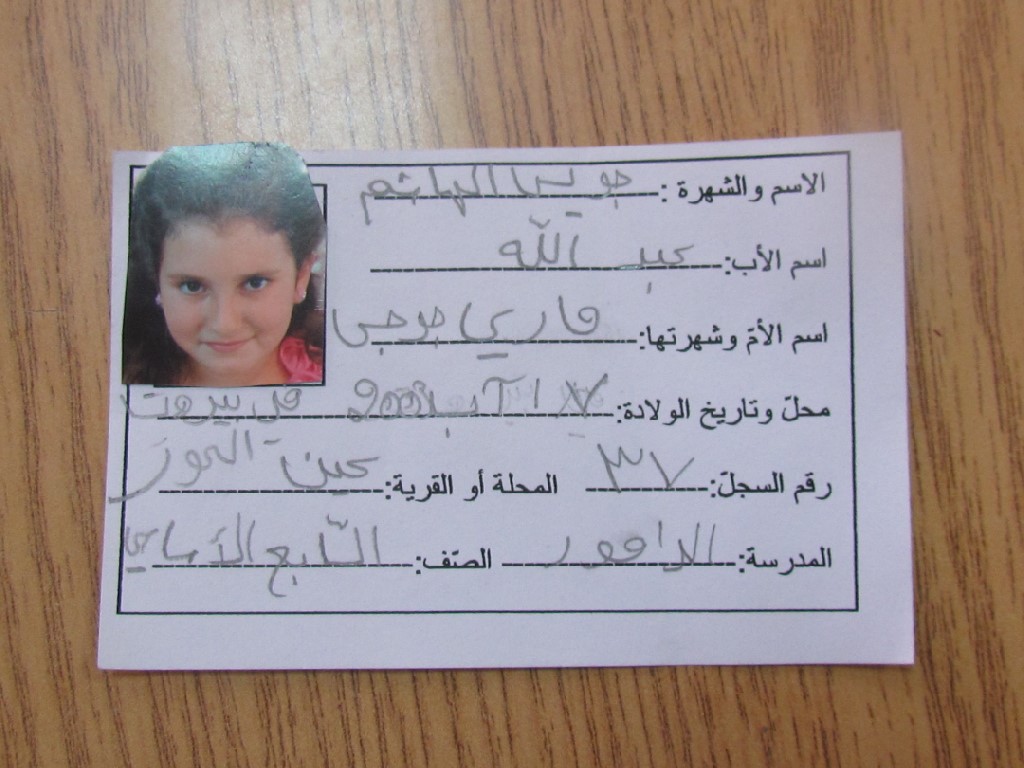 الاسم والشهرة: جويس الهاشم
اسم الأب: عبد الله
اسم الأمّ وشهرتها: ماري جرجس
محلّ وتاريخ الولادة: ١٧ آب 2001 في بيروت
رقم السجلّ: ٣٧ المحلة أو القرية: عين
المدرسة: الصّف: السّابع الأساسي